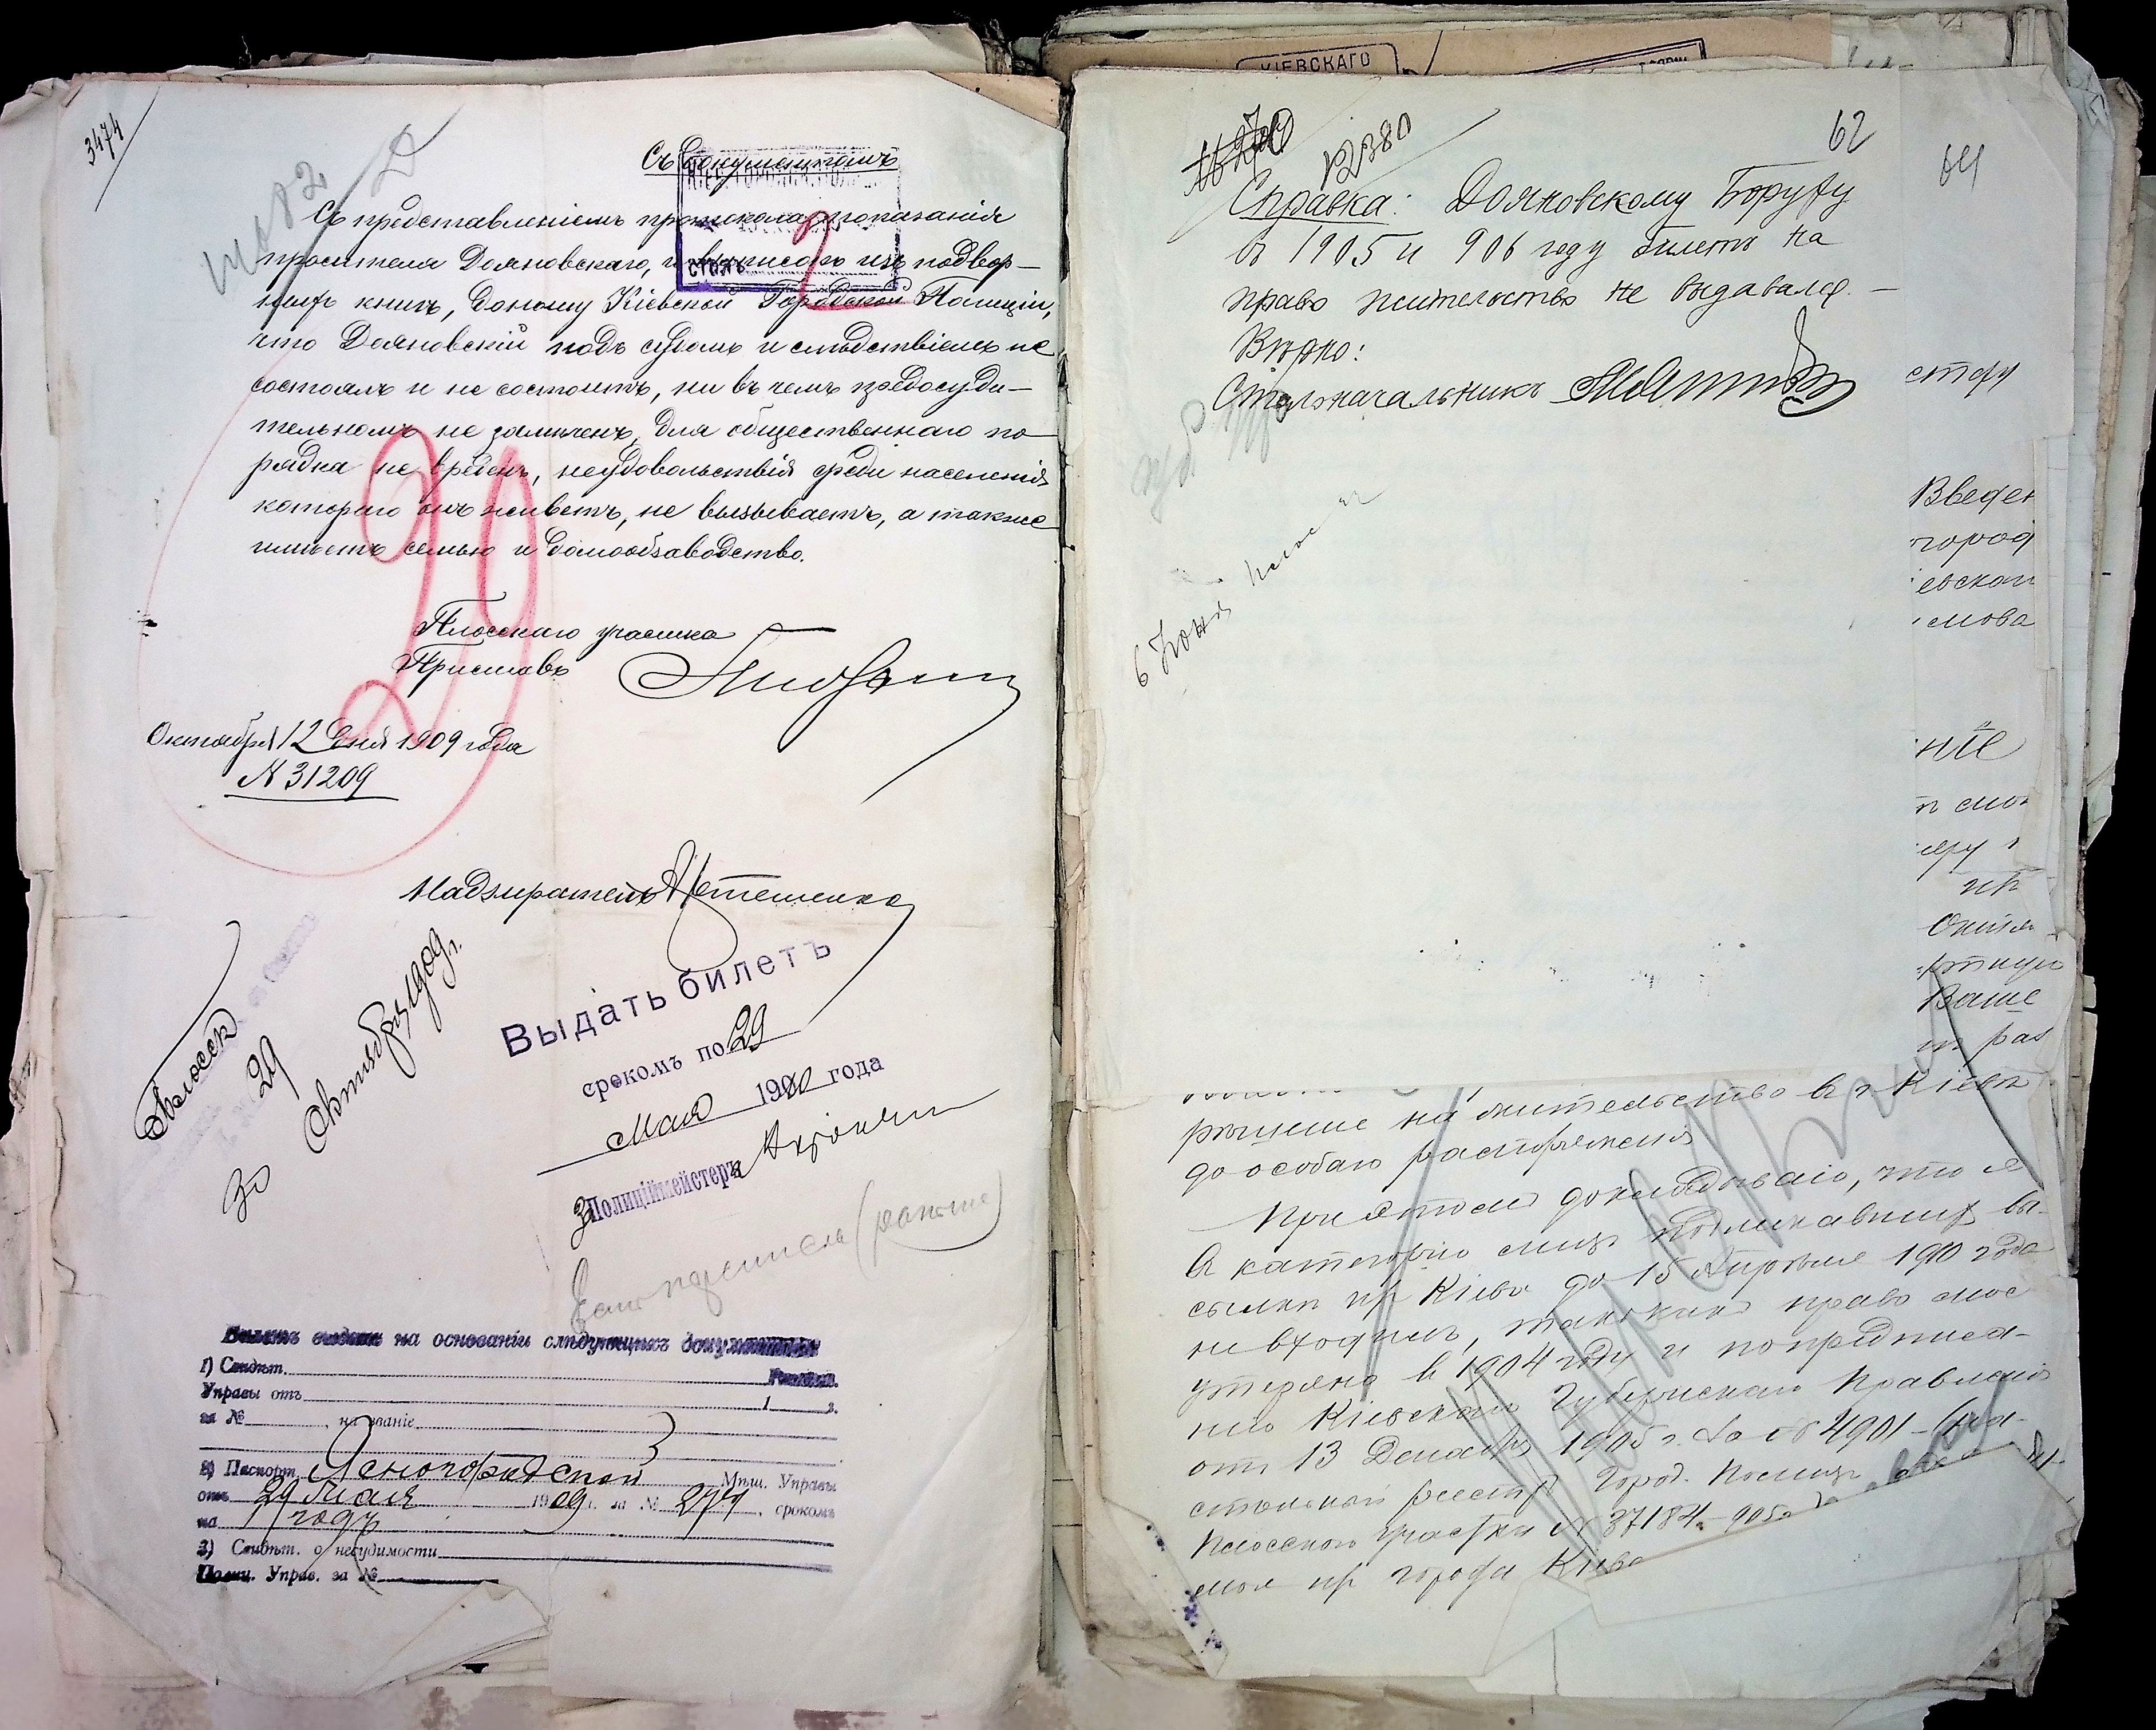 3474
Съ документомъ
Съ представленіемъ протокола показанія
просителя Дояновскаго, и выписокъ изъ подвор-
ныхъ книгъ, доношу Кіевской Городской Полиціи,
что Дояновскій подъ судомъ и слѣдствіемъ не
состоялъ и не состоитъ, ни въ чемъ предосуди-
тельномъ не замѣченъ, для общественнаго по-
рядка не вреденъ, неудовольствія среди населенія
котораго онъ живетъ, не вызываетъ, а также
имѣетъ семью и домообзаводство.
столъ
2
20
Плосскаго участка
Приставъ
Октября 12 дня 1909 года
N 31209
Надзиратель
Плосск
29
Октября 1909 г.
Выдать билетъ
срокомъ по 29
Мая 1910 года
За Полиціймейстера
на основаніи слѣдующихъ документовъ
1) Свидѣт.
Управы отъ 1 г.
за № , на званіе
2) Паспорт. Ясногородской Мѣщ. Управы
отъ 29 Мая 1909 г. за № 277, срокомъ
на 1 годъ
3) Свидѣт. о несудимости
Полиц. Управ. за №
КІЕВСКАГО
62
64
12380
Справка: Дояновскому Боруху
въ 1905 и 906 году билетъ на
право жительства не выдавался. —
Вѣрно:
Столоначальникъ
стру
Введен
город
евской
слова
ніе
Октя
Ваше
раз
жительство въ г. Кіевѣ
до особаго распоряженія
При этомъ докладываю, что я
въ категорію лицъ подлежавшихъ вы-
сылкѣ изъ Кіева до 15 Апрѣля 1910 года
не входилъ, такъ какъ право мое
утеряно въ 1904 году и по предписа-
нію Кіевскаго Губернскаго Правленія
от 13 Декабря 1905 г. за № 4901 – (на-
стольный реестръ Город. Полиціи
Плосскаго участка N 37184 – 905 г.
изъ города Кіева